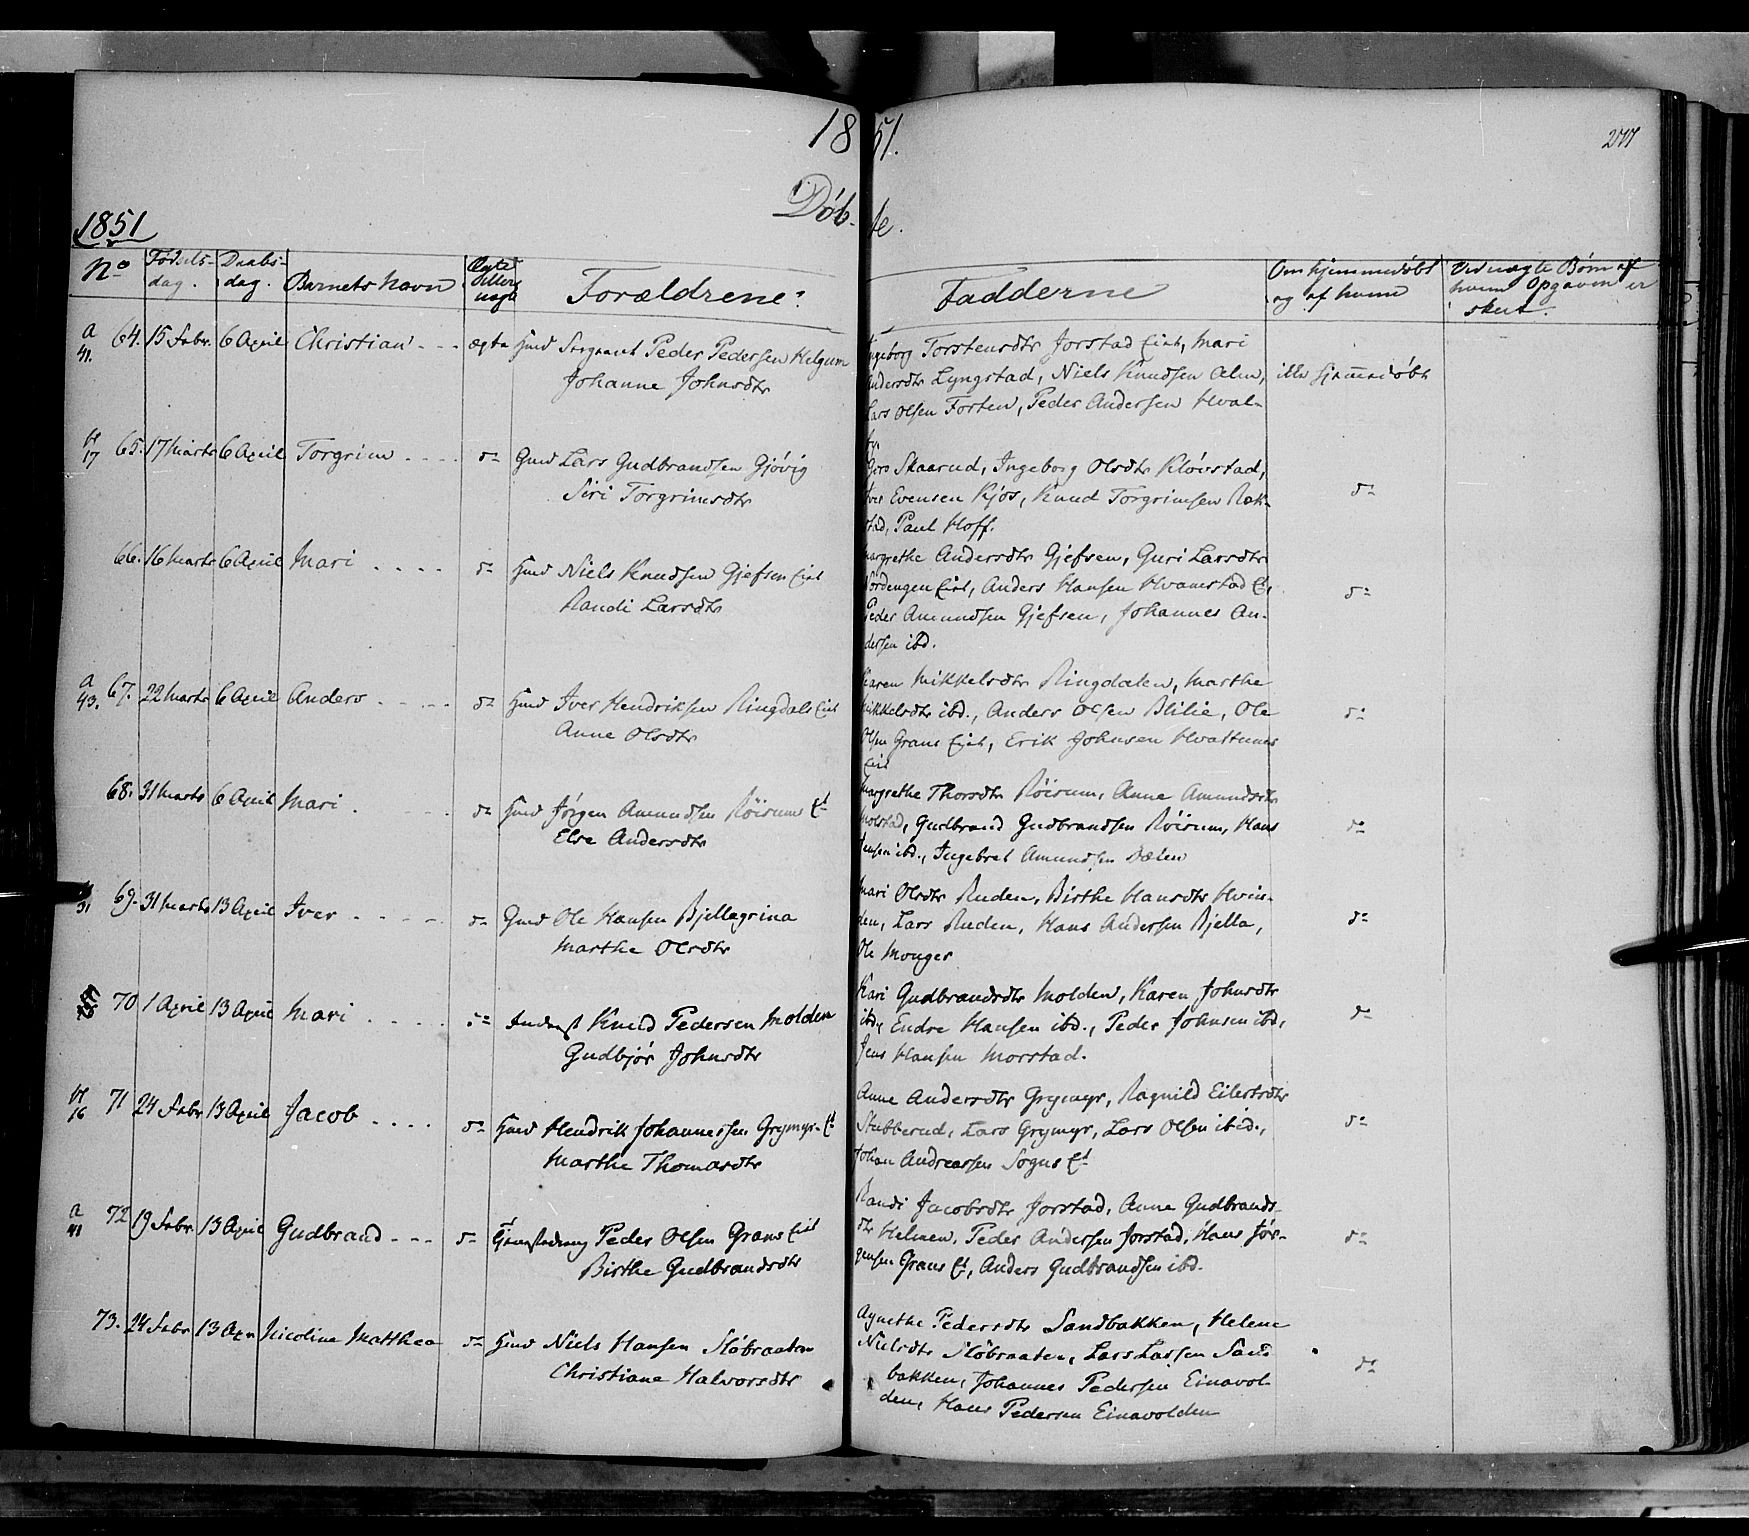 1851.
277
Døbte.
1851
No
Fødsels-
dag.
Daabs-
dag.
Barnets Navn
Ægte
eller
uægte
Forældrene.
Fadderne
Om hjemmedøbt
og af hvem
Ved uægte Børn af
hvem Opgaven er
skeet.
a 41. 64. 15 Febr. 6 April Christian - - - ægte Huusm Sergeant Peder Pedersen Helgum
Johanne Johnsdtr
Ingeborg Torstensdtr Jorstad Eiet, Mari
Andersdtr Lyngstad, Niels Knudsen Alm,
Lars Olsen Forten, Peder Andersen Hval-
by.
ikke hjemmedøbt
17 65. 17 Marts 6 April Torgrim . . . . do Gmd Lars Gudbrandsen Gjøvig
Siri Torgrimsdtr
Goro Skaarud, Ingeborg Olsdtr Kløvstad,
Iver Evensen Kjos, Knud Torgrimsen Røk-
stad, Paul Hoff.
do
66. 16 Marts 6 April Mari . . . . do Huusm Niels Knudsen Gjefsen Eiet
Randi Larsdtr
Margrethe Andersdtr Gjefsen, Guri Larsdtr
Nordengen Eiet, Anders Hansen Hvamstad E,
Peder Amundsen Gjefsen, Johannes An-
dersen ibd.
do
a 43. 67. 22 Marts 6 April Anders - - - - do Huusm Iver Hendriksen Ringdals Eiet
Anne Olsdtr
Karen Mikkelsdtr Ringdalen, Marthe
Mikkelsdtr ibd., Anders Olsen Blilie, Ole
Olsen Grans Eiet, Erik Johnsen Hvattums
Eiet
do
68. 31 Marts 6 April Mari . do Huusm Jörgen Amundsen Röisums Et
Else Andersdtr
Margrethe Thorsdtr Röisum, Anne Amundsdtr
Molstad, Gudbrand Gudbrandsen Röisum, Hans
Jensen ibd., Ingebret Amundsen Dælen
do
31 69. 31 Marts 13 April Iver - - - - do Gmd Ole Hansen Bjellagrina
Marthe Olsdtr
Mari Olsdtr Ruden, Birthe Hansdtr Hvin-
den, Lars Ruden, Hans Andersen Bjella,
Ole Monger
do
70 1 April 13 April Mari . . . . do Inderst Knud Pedersen Molden
Gudbjør Johnsdtr
Kari Gudbrandsdtr Molden, Karen Johnsdtr
ibd., Endre Hansen ibd., Peder Johnsen ibd,
Jens Hansen Morstad.
do
16 71 24 Febr 13 April Jacob . . . . do Huusm Hendrik Johannessen Grymyr-Et
Marthe Thomasdtr
Anne Andersdtr Grymyr, Ragnild Eilertsdtr
Stubberud, Lars Grymyr, Lars Olsen ibid.,
Johan Andreassen Sogns Et
do
a 41 72 19 Febr. 13 April Gudbrand - - - do Peder Olsen Grans Eiet
Birthe Gudbrandsdtr
Randi Jacobsdtr Jorstad, Anne Gudbrands-
dtr Helmen, Peder Andersen Jorstad, Hans Jör-
gensen Grans Et, Anders Gudbrandsen ibd.
do
73. 24 Febr 13 Apr Nicoline Matthea do Huusm Niels Hansen Slöbraaten
Christiane Halvorsdtr
Agnethe Pedersdtr Sandbakken, Helene
Nielsdtr Slöbraaten, Lars Larsen Sand
bakken, Johannes Pedersen Einavol-
den, Hans Pedersen Einavolden
do